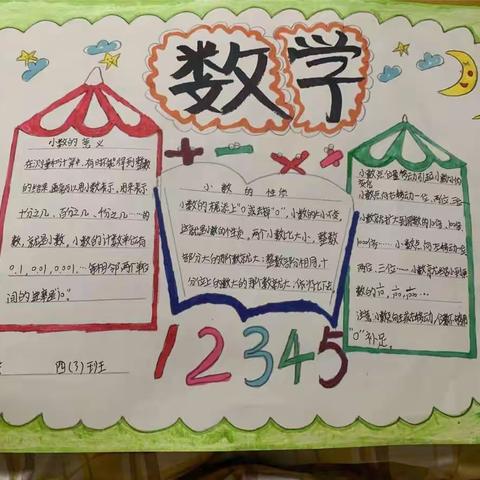 数学
小数的意义
在测量和计算中,有时不能得到整数
的结果,通常可以用小数表示,用来表示
十分之几、百分之几、千分之几……的
数,就是小数,小数的计数单位有
0.1,0.01,0.001,…每相邻两个单位
间的进率是10。
小数的性质
小数的末尾添上"0"或去掉"0",小数的大小不变,
这就是小数的性质。两个小数比大小,整数
部分大的那个数就大;整数部分相同,十
分位上的数大的那个数就大,
小数点位置移动引起小数大小的
变化
小数点向右移动一位、两位、三位…
小数就扩大到原数的10倍、100倍、
1000倍……小数点向左移动一位
两位、三位……小数就缩小到原
数的1/10,1/100,1/1000…
注意:小数点向左或右移动,位数不够用
"0"补足。
+ - × ÷
1 2 3 4 5
四(3)班